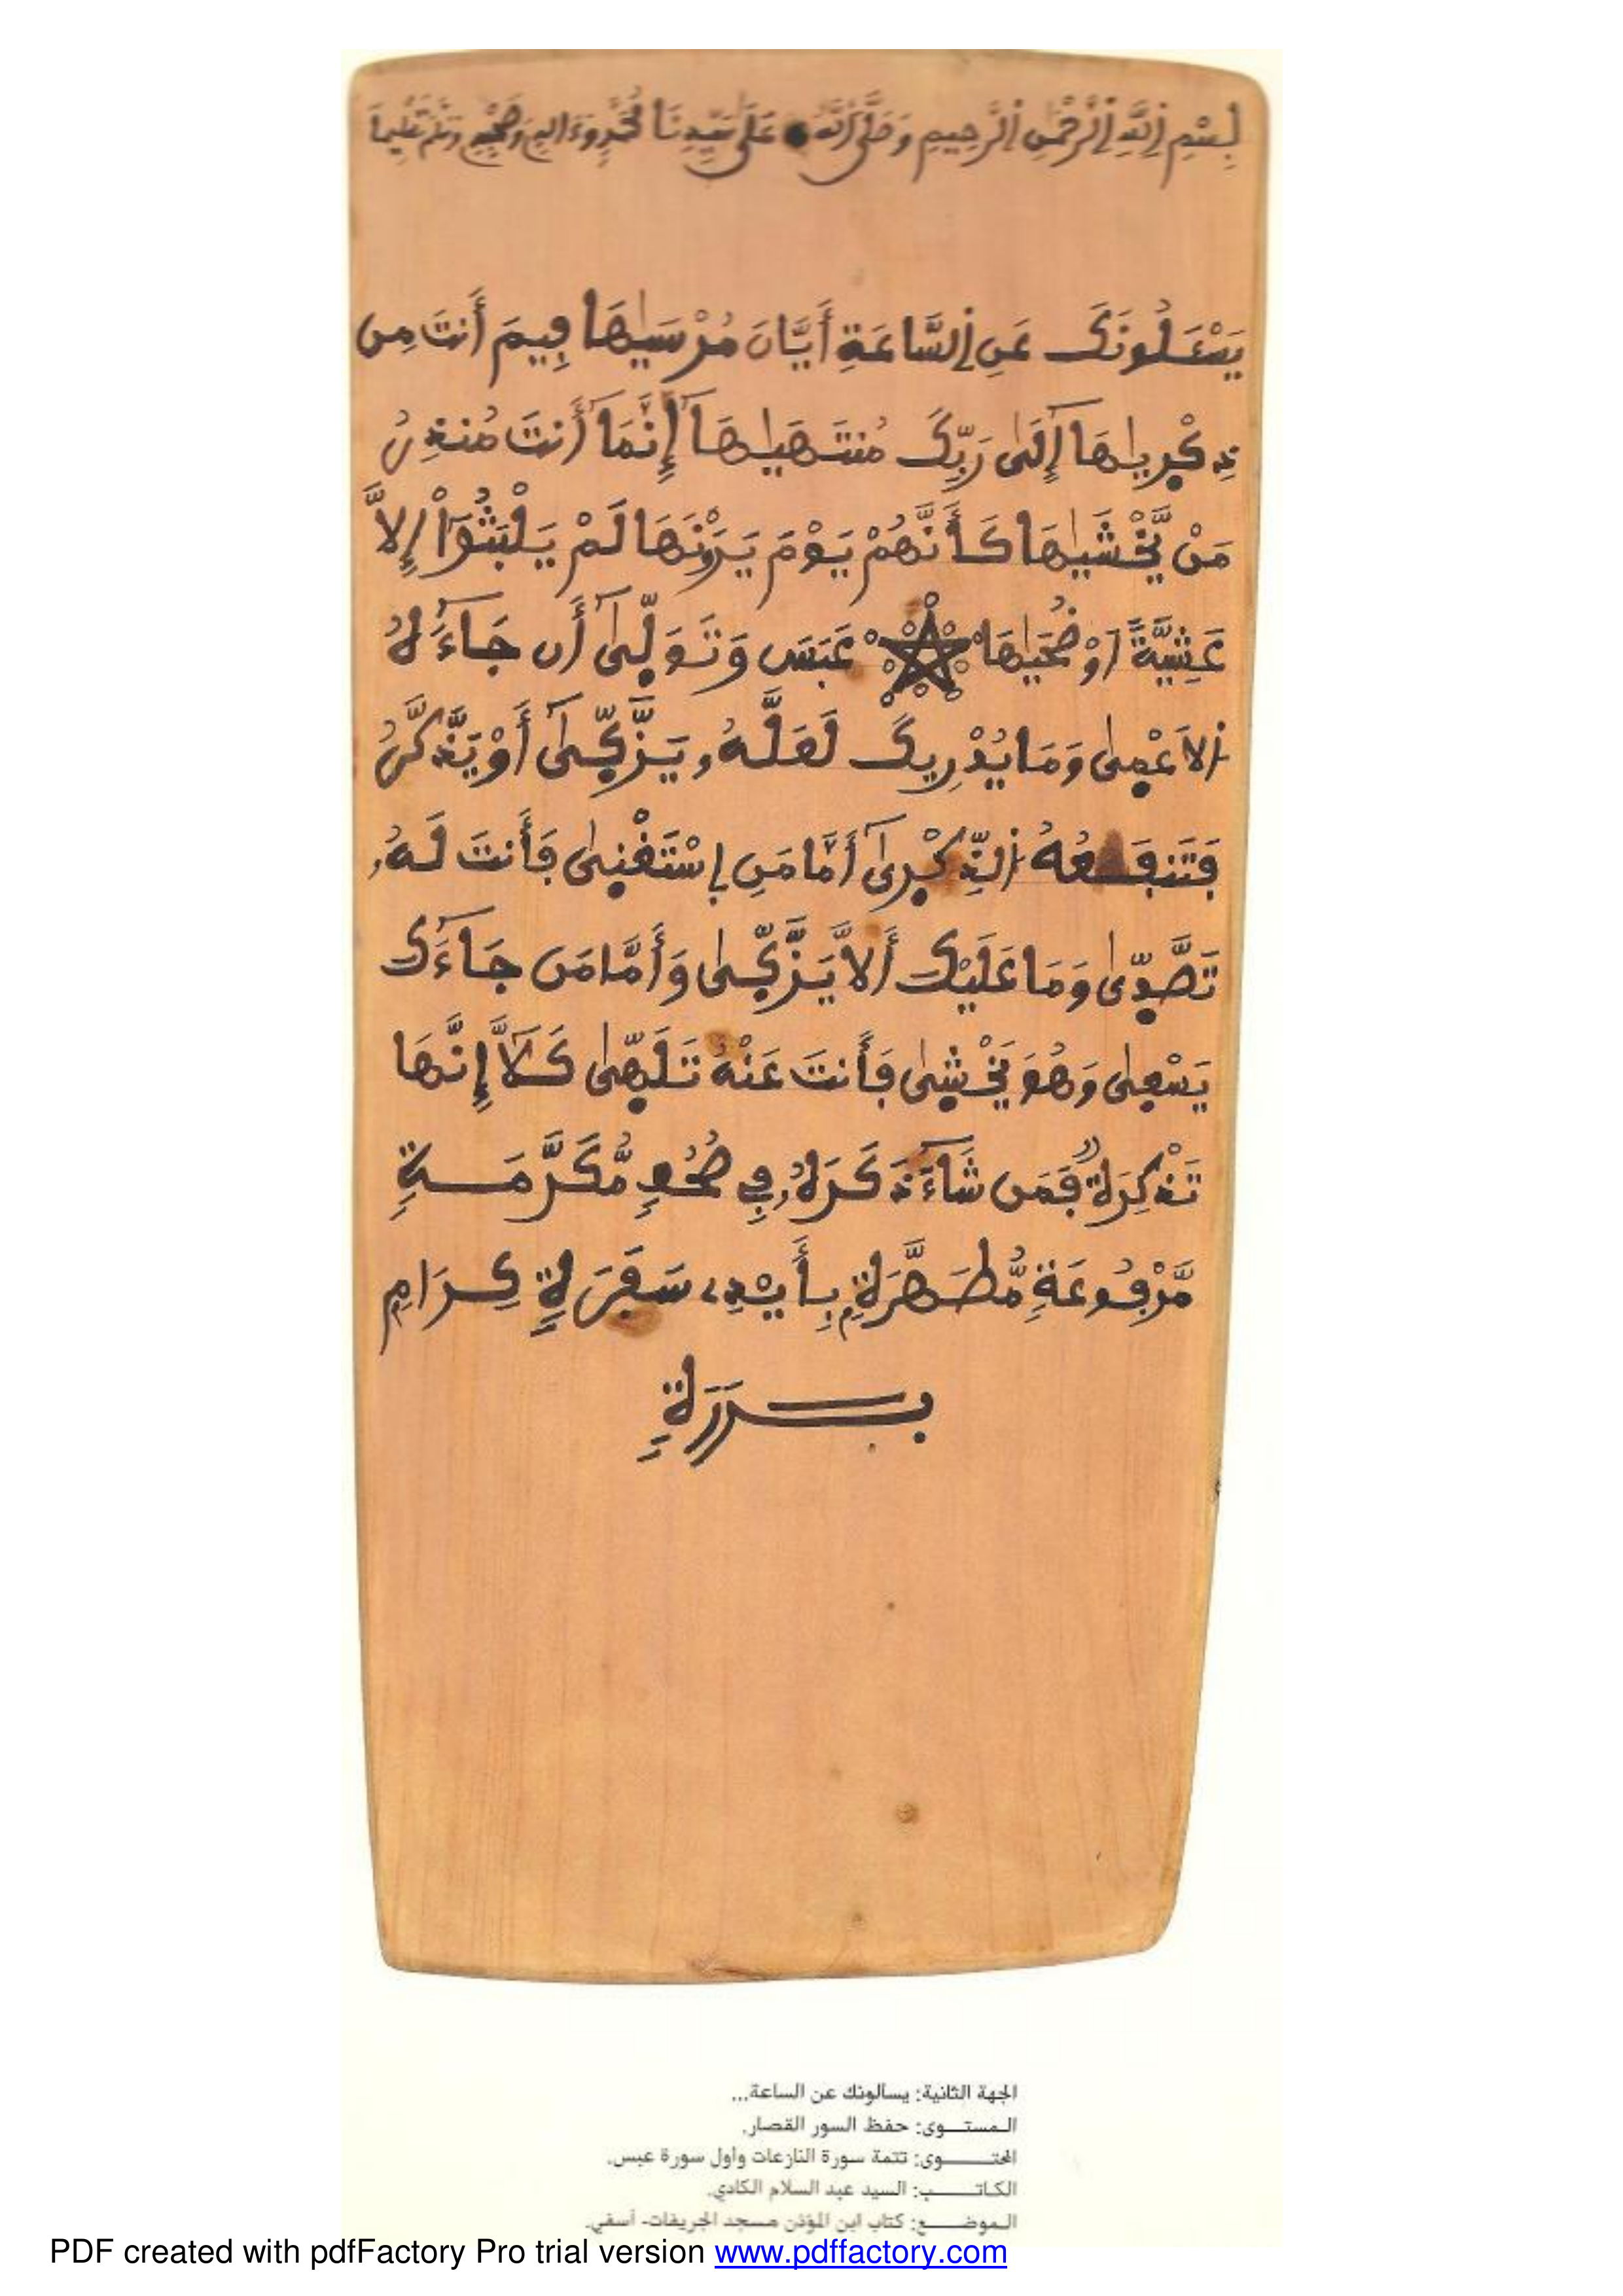 بِسْمِ اِللَّهِ اِلرَّحْمَٰنِ اِلرَّحِيمِ وَصَلَّى اَللَّهُ عَلَىٰ سَيِّدِنَا مُحَمَّدٍ وَءَالِهِ وَصَحْبِهِ وَسَلَّمَ تَسْلِيماً
يَسْـَٔلُونَكَ عَنِ اِلسَّاعَةِ أَيَّانَ مُرْسَيٰهَا فِيمَ أَنتَ مِن
ذِكْرِيٰهَا إِلَىٰ رَبِّكَ مُنتَهَيٰهَا إِنَّمَا أَنتَ مُنذِرُ
مَنْ يَّخْشَيٰهَا كَأَنَّهُمْ يَوْمَ يَرَوْنَهَا لَمْ يَلْبَثُوٓاْ إِلاَّ
عَشِيَّةً اَوْ ضُحَيٰهَا عَبَسَ وَتَوَلّ۪ىٰٓ أَن جَآءَهُ
اُ۬لَاعْم۪ىٰ وَمَا يُدْرِيكَ لَعَلَّهُۥ يَزَّكّ۪ىٰٓ أَوْ يَذَّكَّرُ
فَتَنفَعُهُ اُ۬لذِّكْر۪ىٰٓ أَمَّا مَنِ اِ۪سْتَغْن۪ىٰ فَأَنتَ لَهُۥ
تَصَّدّ۪ىٰ وَمَا عَلَيْكَ أَلاَّ يَزَّكّ۪ىٰ وَأَمَّا مَن جَآءَكَ
يَسْع۪ىٰ وَهُوَ يَخْش۪ىٰ فَأَنتَ عَنْهُ تَلَهّ۪ىٰ كَلَّآ إِنَّهَا
تَذْكِرَةٌ فَمَن شَآءَ ذَكَرَهُۥ فِي صُحُفٍ مُّكَرَّمَةٍ
مَّرْفُوعَةٍ مُّطَهَّرَةِۭ بِأَيْدِے سَفَرَةٍ كِرَامٍ
بَرَرَةٍ
الجهة الثانية: يسألونك عن الساعة...
المستوى: حفظ السور القصار.
المحتوى: تتمة سورة النازعات وأول سورة عبس.
الكاتب: السيد عبد السلام الكادي.
الموضع: كتاب ابن المؤذن مسجد الجريفات- أسفي.
PDF created with pdfFactory Pro trial version www.pdffactory.com